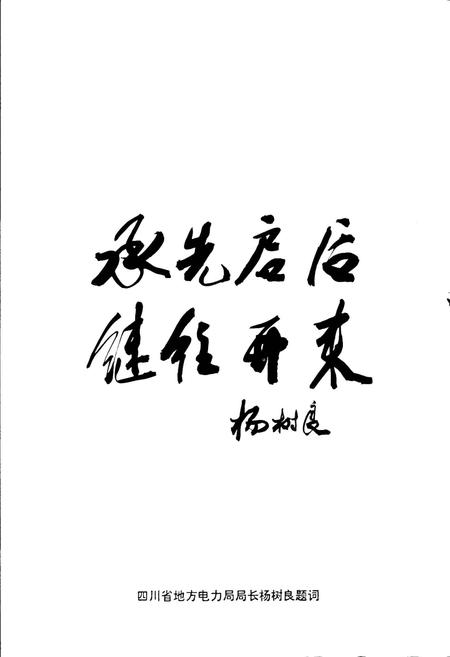 承先启后
继往开来
杨树良
四川省地方电力局局长杨树良题词